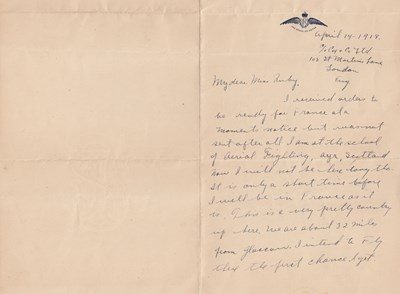 April 14-1918.
% Cox & Co Ltd
166 St Martins Lane
London
Eng
My dear Miss
I received orders to
be ready for France at a
moments notice but was not
sent after all I am at the school
of Aerial Fighting, Ayr, Scotland
now I will not be here long tho.
It is only a short time before
I will be in France as it
is. This is a very pretty country
up here we are about 32 mile
from Glascow. I intend to Fly
there the first chance I get.